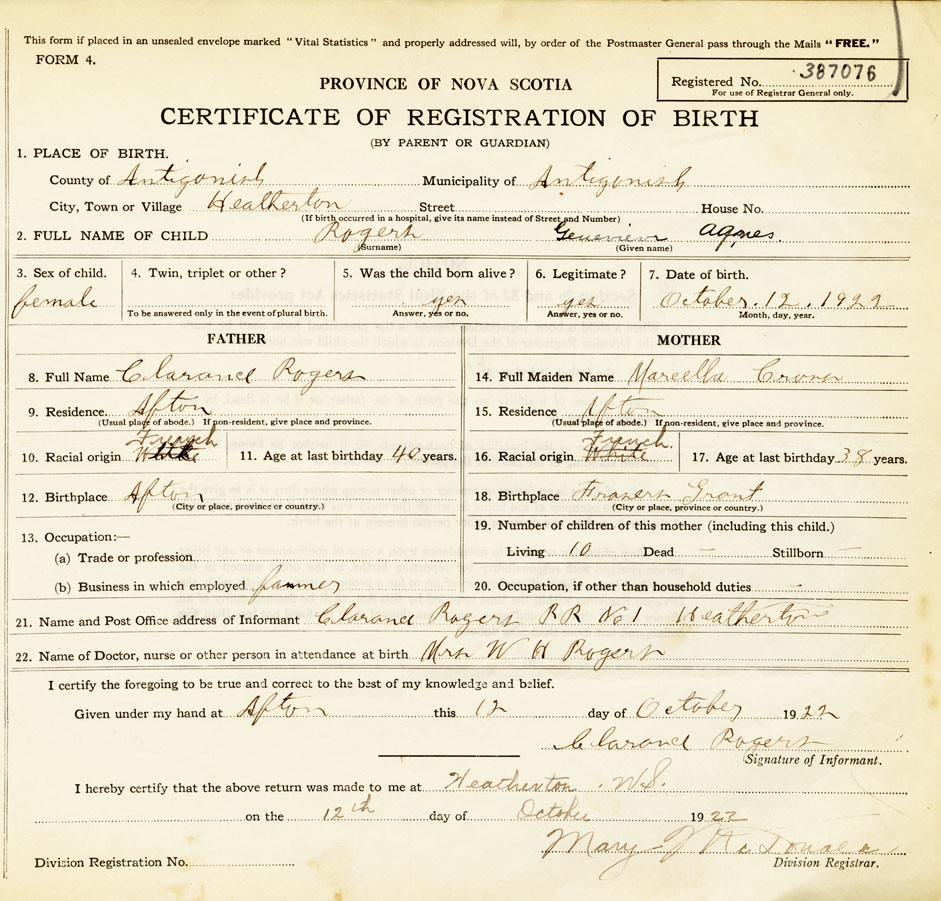 This form if placed in an unsealed envelope marked "Vital Statistics" and properly addressed will, by order of the Postmaster General pass through the Mails "FREE."
FORM 4.
Registered No. 387076
For use of Registrar General only.
PROVINCE OF NOVA SCOTIA
CERTIFICATE OF REGISTRATION OF BIRTH
(BY PARENT OR GUARDIAN)
1. PLACE OF BIRTH.
County of Antigonish Municipality of Antigonish
City, Town or Village Heatherton Street House No.
(If birth occurred in a hospital, give its name instead of Street and Number)
2. FULL NAME OF CHILD Rogers Agnes.
(Surname) (Given name)
3. Sex of child. 4. Twin, triplet or other? 5. Was the child born alive? 6. Legitimate? 7. Date of birth.
female yes yes October 12, 1922
To be answered only in the event of plural birth. Answer, yes or no. Answer, yes or no. Month, day, year.
FATHER MOTHER
8. Full Name Clarance Rogers 14. Full Maiden Name
9. Residence Afton 15. Residence Afton
(Usual place of abode.) If non-resident, give place and province. (Usual place of abode.) If non-resident, give place and province.
French French
10. Racial origin White 11. Age at last birthday 40 years. 16. Racial origin White 17. Age at last birthday 38 years.
12. Birthplace Afton 18. Birthplace Frasers Grant
(City or place, province or country.) (City or place, province or country.)
13. Occupation:— 19. Number of children of this mother (including this child.)
(a) Trade or profession Living 10 Dead – Stillborn –
(b) Business in which employed farmer 20. Occupation, if other than household duties –
21. Name and Post Office address of Informant Clarance Rogers R R No 1 Heatherton
22. Name of Doctor, nurse or other person in attendance at birth Mrs W H Rogers
I certify the foregoing to be true and correct to the best of my knowledge and belief.
Given under my hand at Afton this 12 day of October 1922
Clarance Rogers
Signature of Informant.
I hereby certify that the above return was made to me at Heatherton N.S.
on the 12th day of October 1922
Mary J McDonald
Division Registration No. Division Registrar.